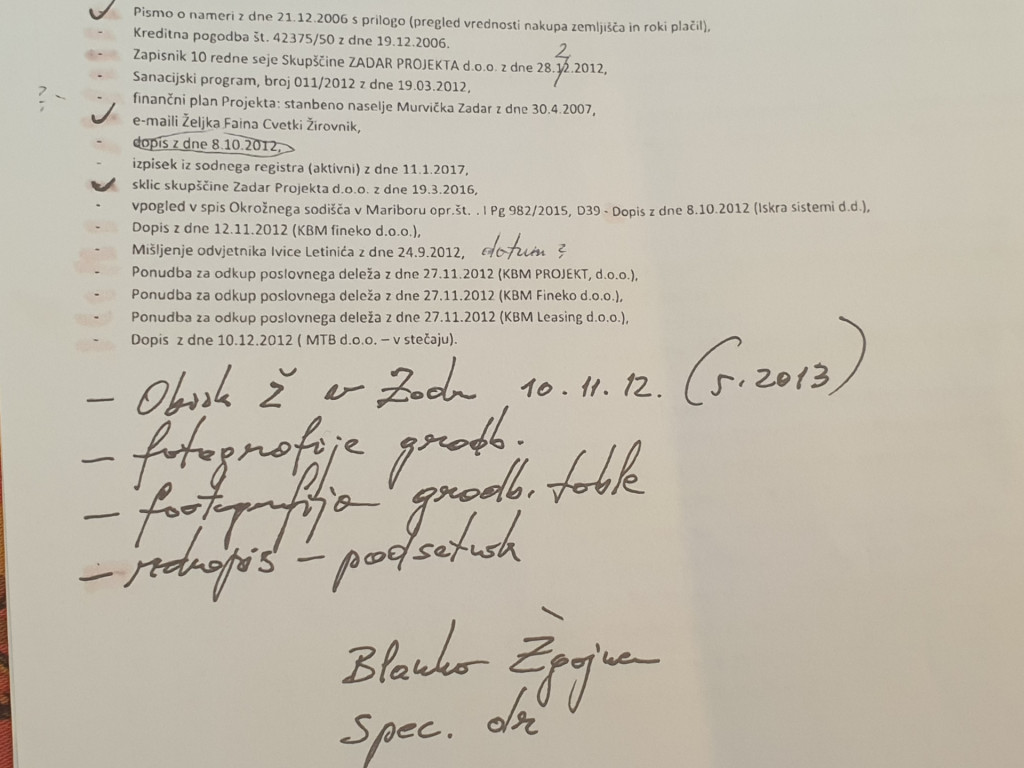 Pismo o nameri z dne 21.12.2006 s prilogo (pregled vrednosti nakupa zemljišča in roki plačil),
- Kreditna pogodba št. 42375/50 z dne 19.12.2006.
2
- Zapisnik 10 redne seje Skupščine ZADAR PROJEKTA d.o.o. z dne 28.12.2012,
- Sanacijski program, broj 011/2012 z dne 19.03.2012,
? - - finančni plan Projekta: stanbeno naselje Murvička Zadar z dne 30.4.2007,
e-maili Željka Faina Cvetki Žirovnik,
- dopis z dne 8.10.2012,
- izpisek iz sodnega registra (aktivni) z dne 11.1.2017,
sklic skupščine Zadar Projekta d.o.o. z dne 19.3.2016,
- vpogled v spis Okrožnega sodišča v Mariboru opr.št. . I Pg 982/2015, D39 - Dopis z dne 8.10.2012 (Iskra sistemi d.d.),
- Dopis z dne 12.11.2012 (KBM fineko d.o.o.),
- Mišljenje odvjetnika Ivice Letinića z dne 24.9.2012, datum ?
- Ponudba za odkup poslovnega deleža z dne 27.11.2012 (KBM PROJEKT, d.o.o.),
- Ponudba za odkup poslovnega deleža z dne 27.11.2012 (KBM Fineko d.o.o.),
- Ponudba za odkup poslovnega deleža z dne 27.11.2012 (KBM Leasing d.o.o.),
- Dopis z dne 10.12.2012 ( MTB d.o.o. – v stečaju).
- Obisk Ž v Zadru 10.11.12. (5.2013)
- fotografije gradb.
- fotografija gradb. table
- - podsetnik
Blanko
spec. dr